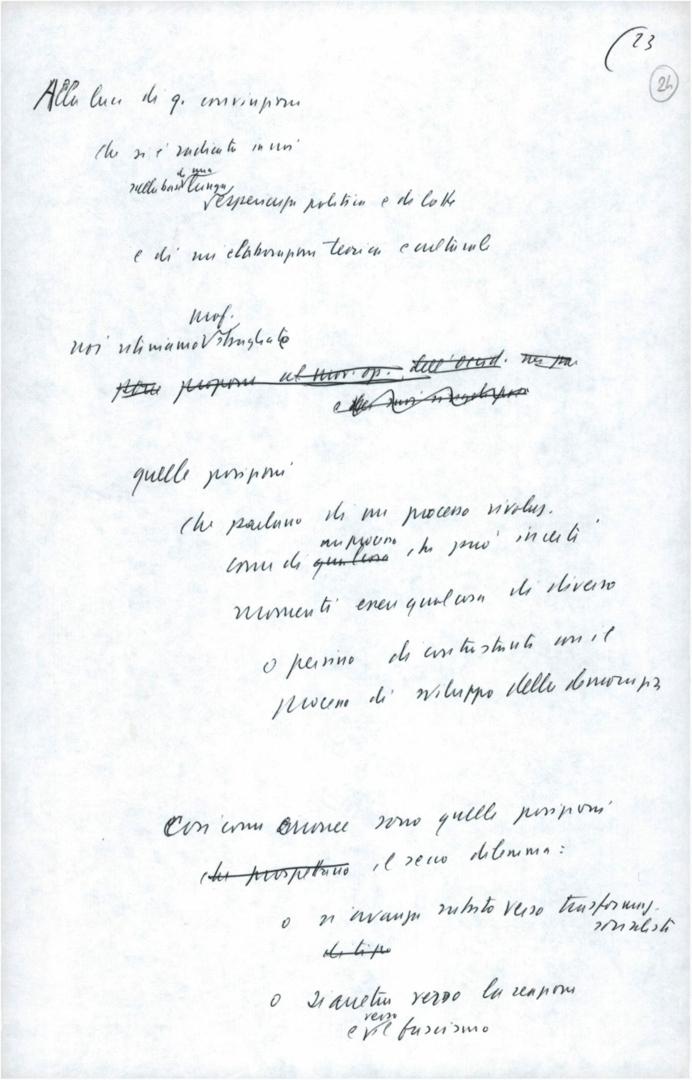 23
24
Alla luce di q. convinzioni
che si è radicata in noi
di una
sulla base lunga
esperienza politica e di lotte
e di un'elaborazione teorica e culturale
prof.
noi riteniamo sbagliate
proporre al mov. op. dell'Occid.
e
quelle posizioni
che parlano di un processo rivoluz.
un processo
come di qualcosa che può in certi
momenti essere qualcosa di diverso
o persino di contrastante con il
processo di sviluppo della democrazia
Così come erronee sono quelle posizioni
che prospettano il secco dilemma:
o si avanza subito verso trasformaz.
socialiste
di tipo
o si arretra verso la reazione
verso
e il fascismo